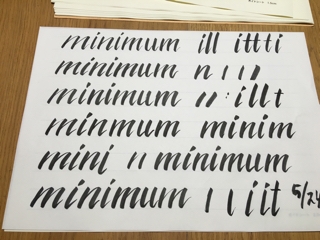 minimum ill ittti
minimum n ı ı ıı
minimum ıı : illt
minmum minim
mini ıı minimum
minimum l l iit 5/24